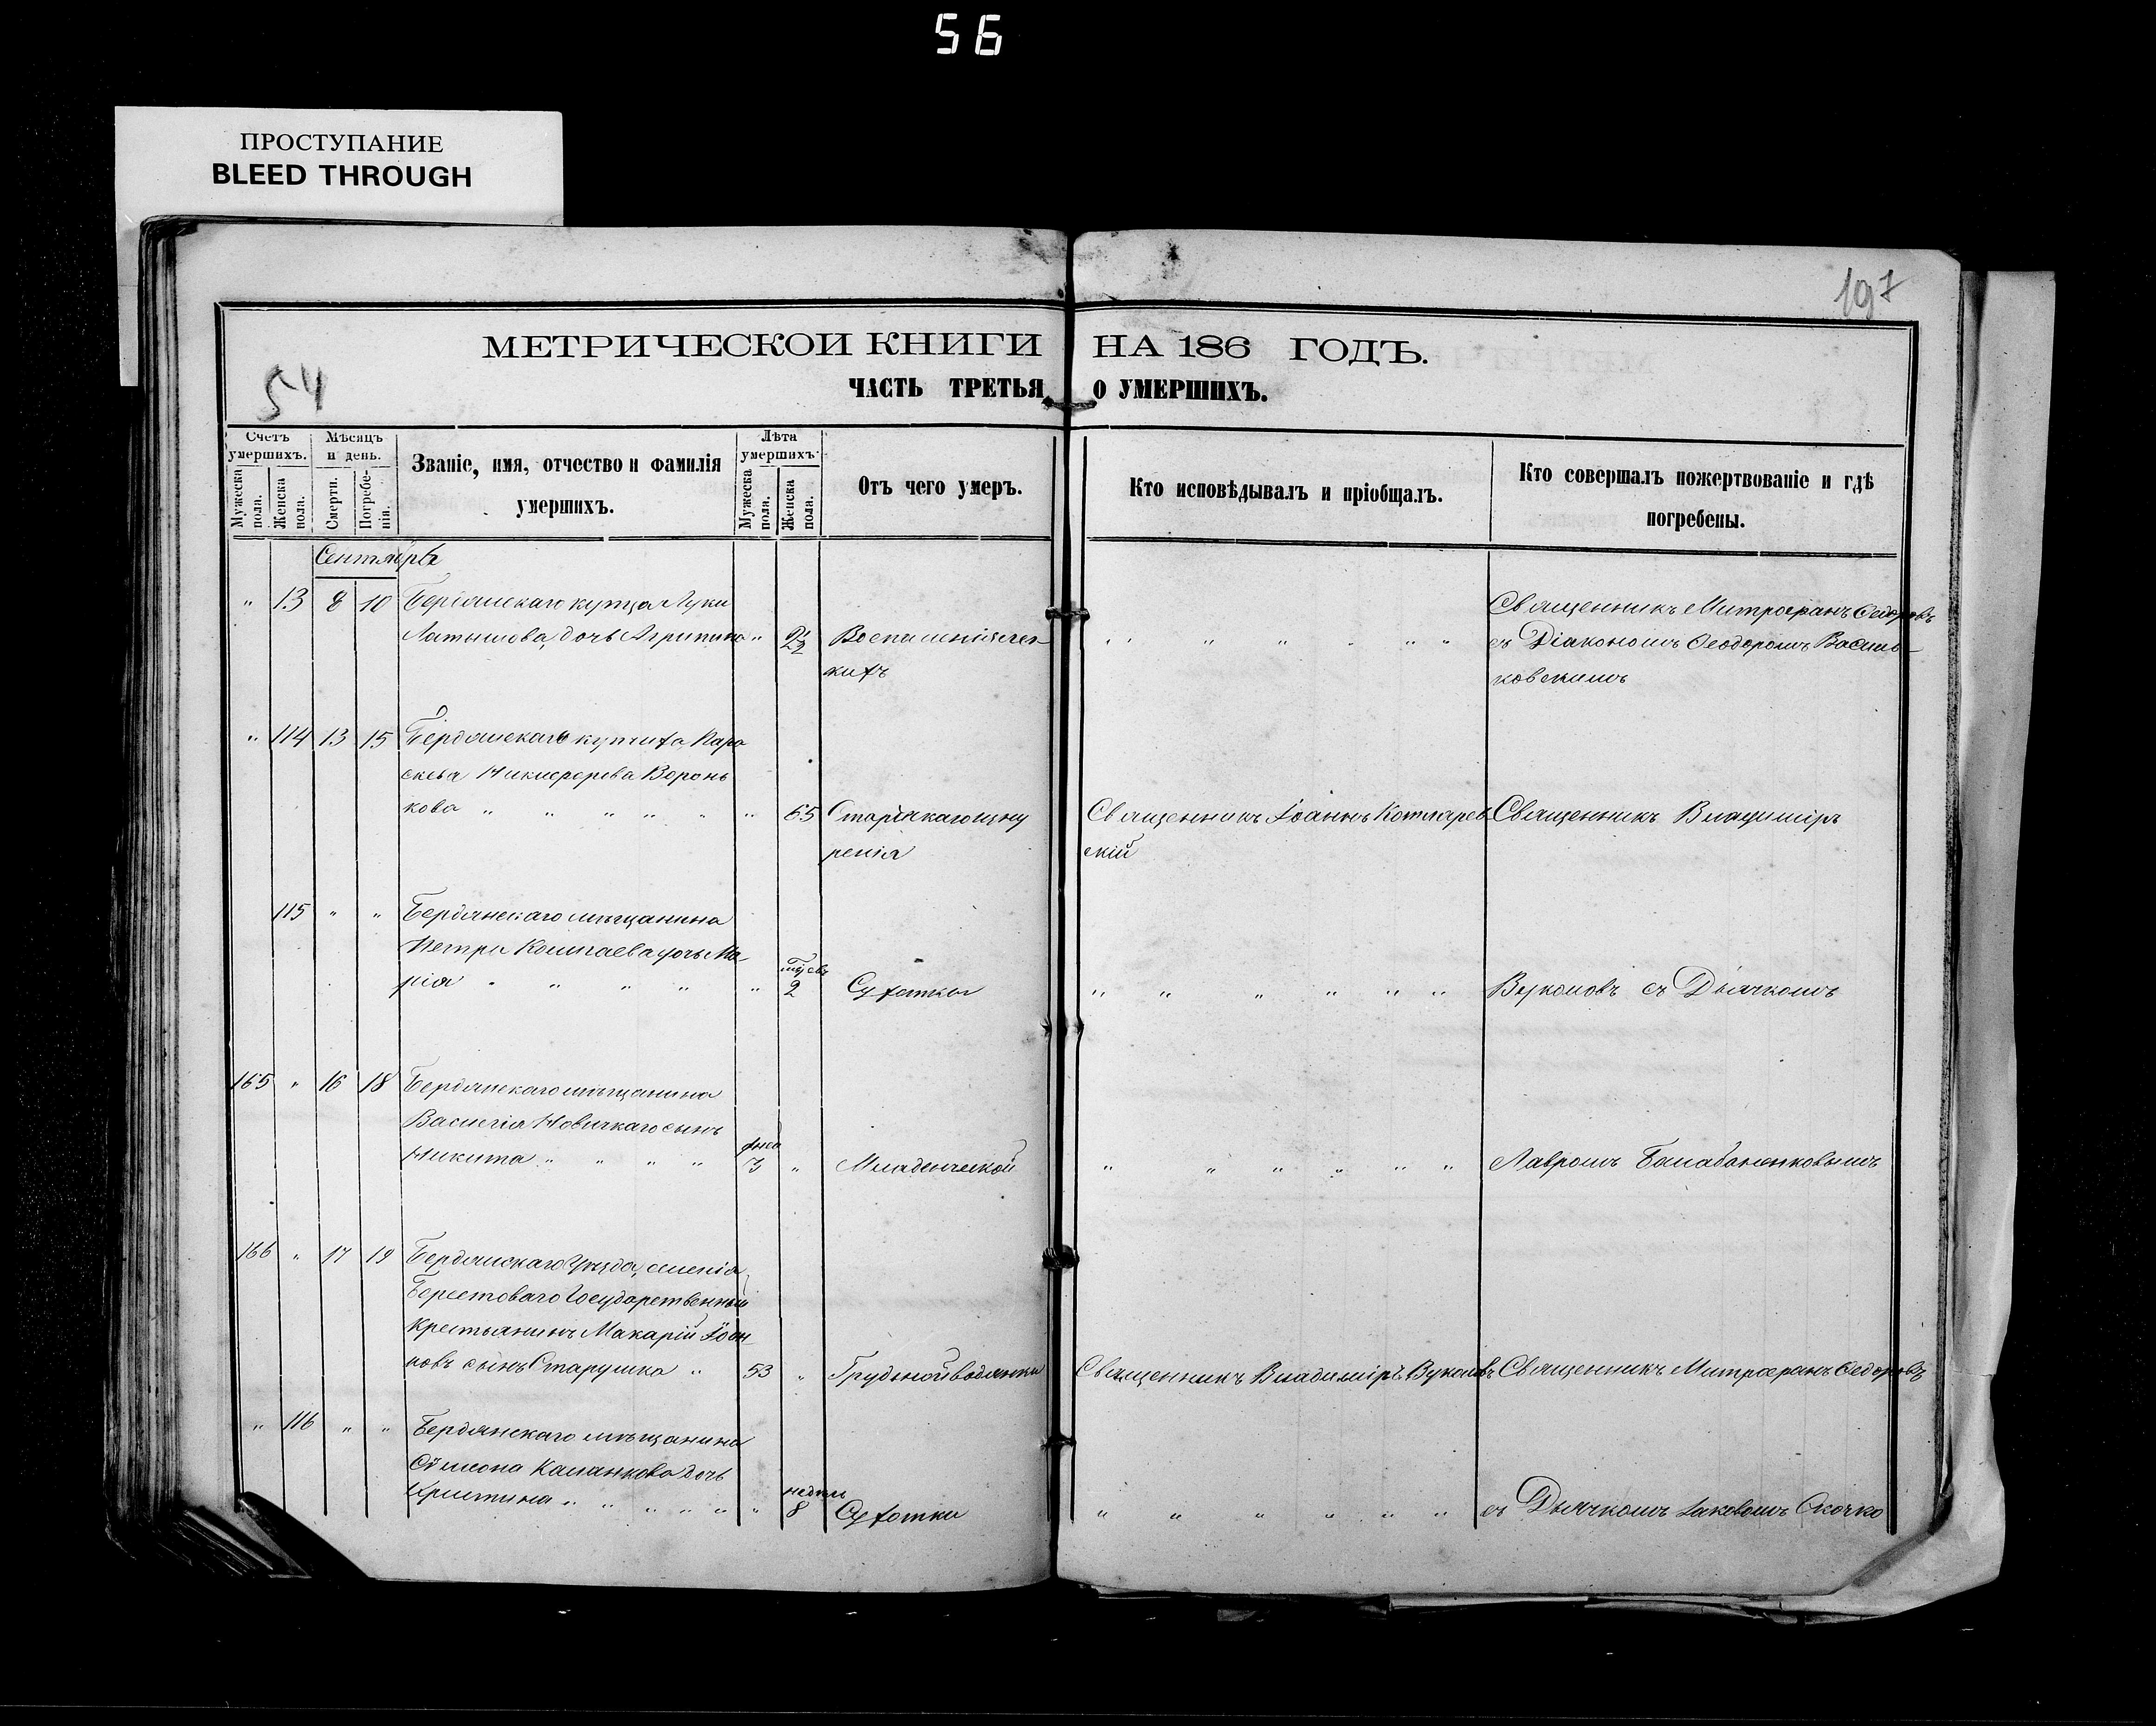 56
ПРОСТУПАНИЕ
BLEED THROUGH
197
54
МЕТРИЧЕСКОЙ КНИГИ НА 186 ГОДЪ.
ЧАСТЬ ТРЕТЬЯ О УМЕРШИХЪ.
Счетъ умершихъ.
Мужеска пола.
Женска пола.
Мѣсяцъ и день.
Смерти.
Погребенія.
Званіе, имя, отчество и фамилія
умершихъ.
Лѣта умершихъ
Мужеска пола.
Женска пола.
Отъ чего умеръ.
Кто исповѣдывалъ и пріобщалъ.
Кто совершалъ пожертвованіе и гдѣ
погребены.
Сентябрь
" 13 8 10 Бердянскаго купца Луки
Латышова, дочь Агрипина "
Воспаленія лег-
кихъ
Священникъ Митрофанъ Федоровъ
съ Діакономъ Феодоромъ Василь-
ковскимъ
" 114 13 15 Бердянскаго купчиха Пара
скева Никифорова Воронь
кова " " " " " " 65 Старческаго изну
ренія
Священникъ Іоаннъ Котляревскій
Священникъ Владиміръ
115 " " Бердянскаго мѣщанина
Петра Колпаева дочь Ма-
рія " " " " " мѣсяц 2 Сухотки
" " " " " "
Вуколовъ съ Дьячкомъ
165 " 16 18 Бердянскаго мѣщанина
Василія Новичкаго сынъ
Никита " " " " дней 3 " Младенческой
" " " " " "
Лавромъ Балабаненковымъ
166 " 17 19 Бердянскаго Уѣзда, селенія
Берестоваго Государственный
крестьянинъ Макарій Іоан
новъ сынъ Старушка " 53 " Грудной водянки
Священникъ Владиміръ Вуколовъ
Священникъ Митрофанъ Федоровъ
" 116 " " Бердянскаго мѣщанина
Симеона Каланкова дочь
Христина " " " " " " недѣль 8 Сухотки
" " " " " "
съ Дьячкомъ Іаковомъ Скочко